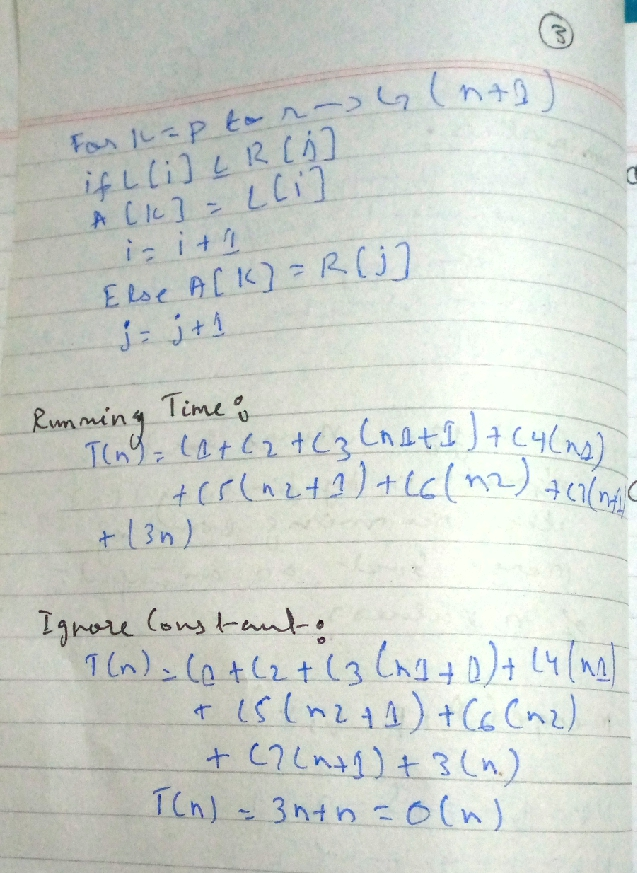 3
For K = p to r → C7 (n+1)
if L[i] ≤ R[j]
A[K] = L[i]
i = i + 1
Else A[K] = R[j]
j = j + 1
Running Time :
T(n) = C1 + C2 + C3 (n1+1) + C4(n1)
+ C5(n2+1) + C6(n2) + C7(n+1)
+ (3n)
Ignore Constant :
T(n) = C1 + C2 + C3 (n1+1) + C4(n1)
+ C5(n2+1) + C6(n2)
+ C7(n+1) + 3(n)
T(n) = 3n+n = O(n)